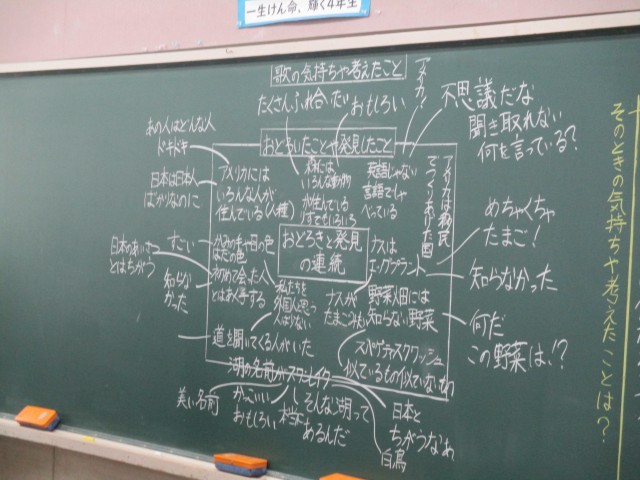 一生けん命、輝く4年生
歌の気持ちや考えたこと
アメリカ?
たくさんふれ合いたい
おもしろい
不思議だな
聞き取れない
何を言っている?
あの人はどんな人
ドキドキ
おどろいたことや発見したこと
日本は日本人
ばかりなのに
アメリカには
いろんな人が
住んでいる(人種)
森には
いろんな動物
が住んでいる
英語じゃない
言語でしゃ
べっている
アメリカは移民
でつくられた国
めちゃくちゃ
たまご!
おどろきと発見
の連続
ナスは
エッグプラント
日本のあいさつ
とはちがう
知らな
かった
かみの毛や目の色
はだの色
初めて会った人
とはあく手する
私たちを
外国人と思っ
ナスが
野菜畑には
知らない野菜
知らなかった
何だ
この野菜は!?
道を聞いてくる人がいた
スパゲティスクワッシュ
似ているもの似ていないもの
湖の名前がスワンレイク
美しい名前
かっこいい
おもしろい
そんな湖って
本当に
あるんだ
日本と
ちがうなあ
白鳥
そのときの気持ちや考えたことは?